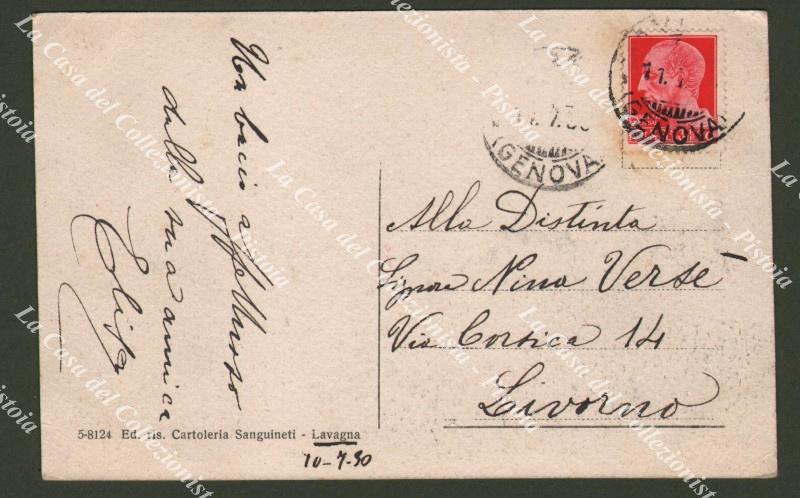 Un bacio affettuoso
dalla sua amica
Elisa
(GENOVA)
(GENOVA)
Alla Distinta
Signora Nina Versè
Via Corsica 14
Livorno
5-8124 Ed. ris. Cartoleria Sanguineti - Lavagna
10-7-30
La Casa del Collezionista - Pistoia